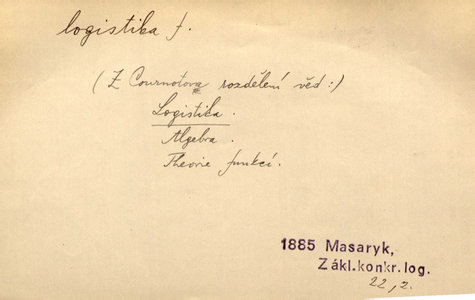 logistika f.
(Z Cournotova rozdělení věd:)
Logistika.
Algebra.
Theorie funkcí.
1885 Masaryk,
Zákl.konkr.log.
22,2.